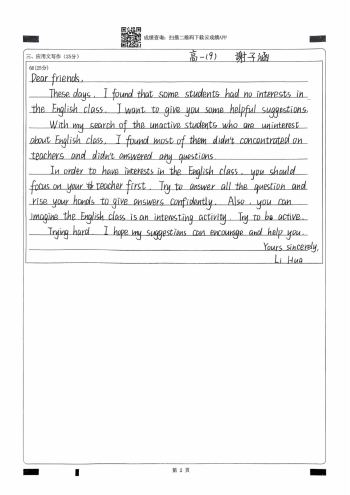 成绩查询：扫描二维码下载云成绩APP
三、应用文写作（25分）
高一(9) 谢子涵
66(25分)
Dear friends,
These days, I found that some students had no interests in
the English class. I want to give you some helpful suggestions.
With my search of the unactive students who are uninterest
about English class, I found most of them didn't concentrated on
teachers and didn't answered any questions.
In order to have interests in the English class, you should
focus on your teacher first. Try to answer all the question and
rise your hands to give answers confidently. Also, you can
imagine the English class is an intersting activity. Try to be active.
Trying hard. I hope my suggestions can encourage and help you.
Yours sincerely,
Li Hua
第 2 页